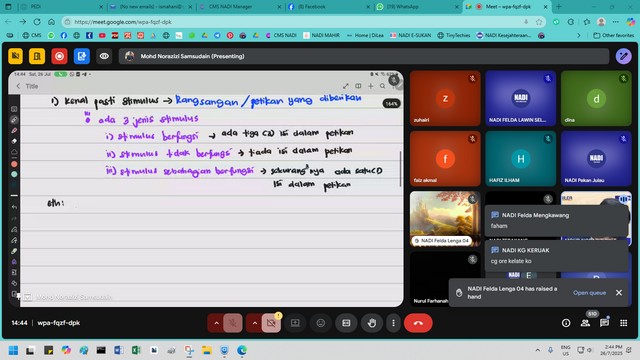 PEDi
CMS NADI Manager
(8) Facebook
(19) WhatsApp
Meet – wpa-fqzf-dpk
https://meet.google.com/wpa-fqzf-dpk
CMS NADI
NADI MAHIR
Home | DiLea
NADI E-SUKAN
TinyTech
NADI Kesejahteraan...
Other favorites
Mohd Norazizi Samsudain (Presenting)
14:44 Sat, 26 Jul
Title
164%
1) Kenal pasti stimulus → Rangsangan / petikan yang diberikan
ada 3 jenis stimulus
i) stimulus berfungsi → ada tiga (3) isi dalam petikan
ii) stimulus tidak berfungsi → tiada isi dalam petikan
iii) stimulus sebahagian berfungsi → sekurang²nya ada satu (1)
isi dalam petikan
cth:
Mohd Norazizi Samsudain
z
zuhairi
NADI FELDA LAWIN SEL...
d
dina
f
faiz akmal
H
HAFIZ ILHAM
NADI Pekan Julau
NADI Felda Lenga 04
NADI Felda Mengkawang
faham
NADI KG KERUAK
cg ore kelate ko
Nurul Farhanah
NADI Felda Lenga 04 has raised a
hand
Open queue
14:44
wpa-fqzf-dpk
510
ENG
US
2:44 PM
26/7/2025